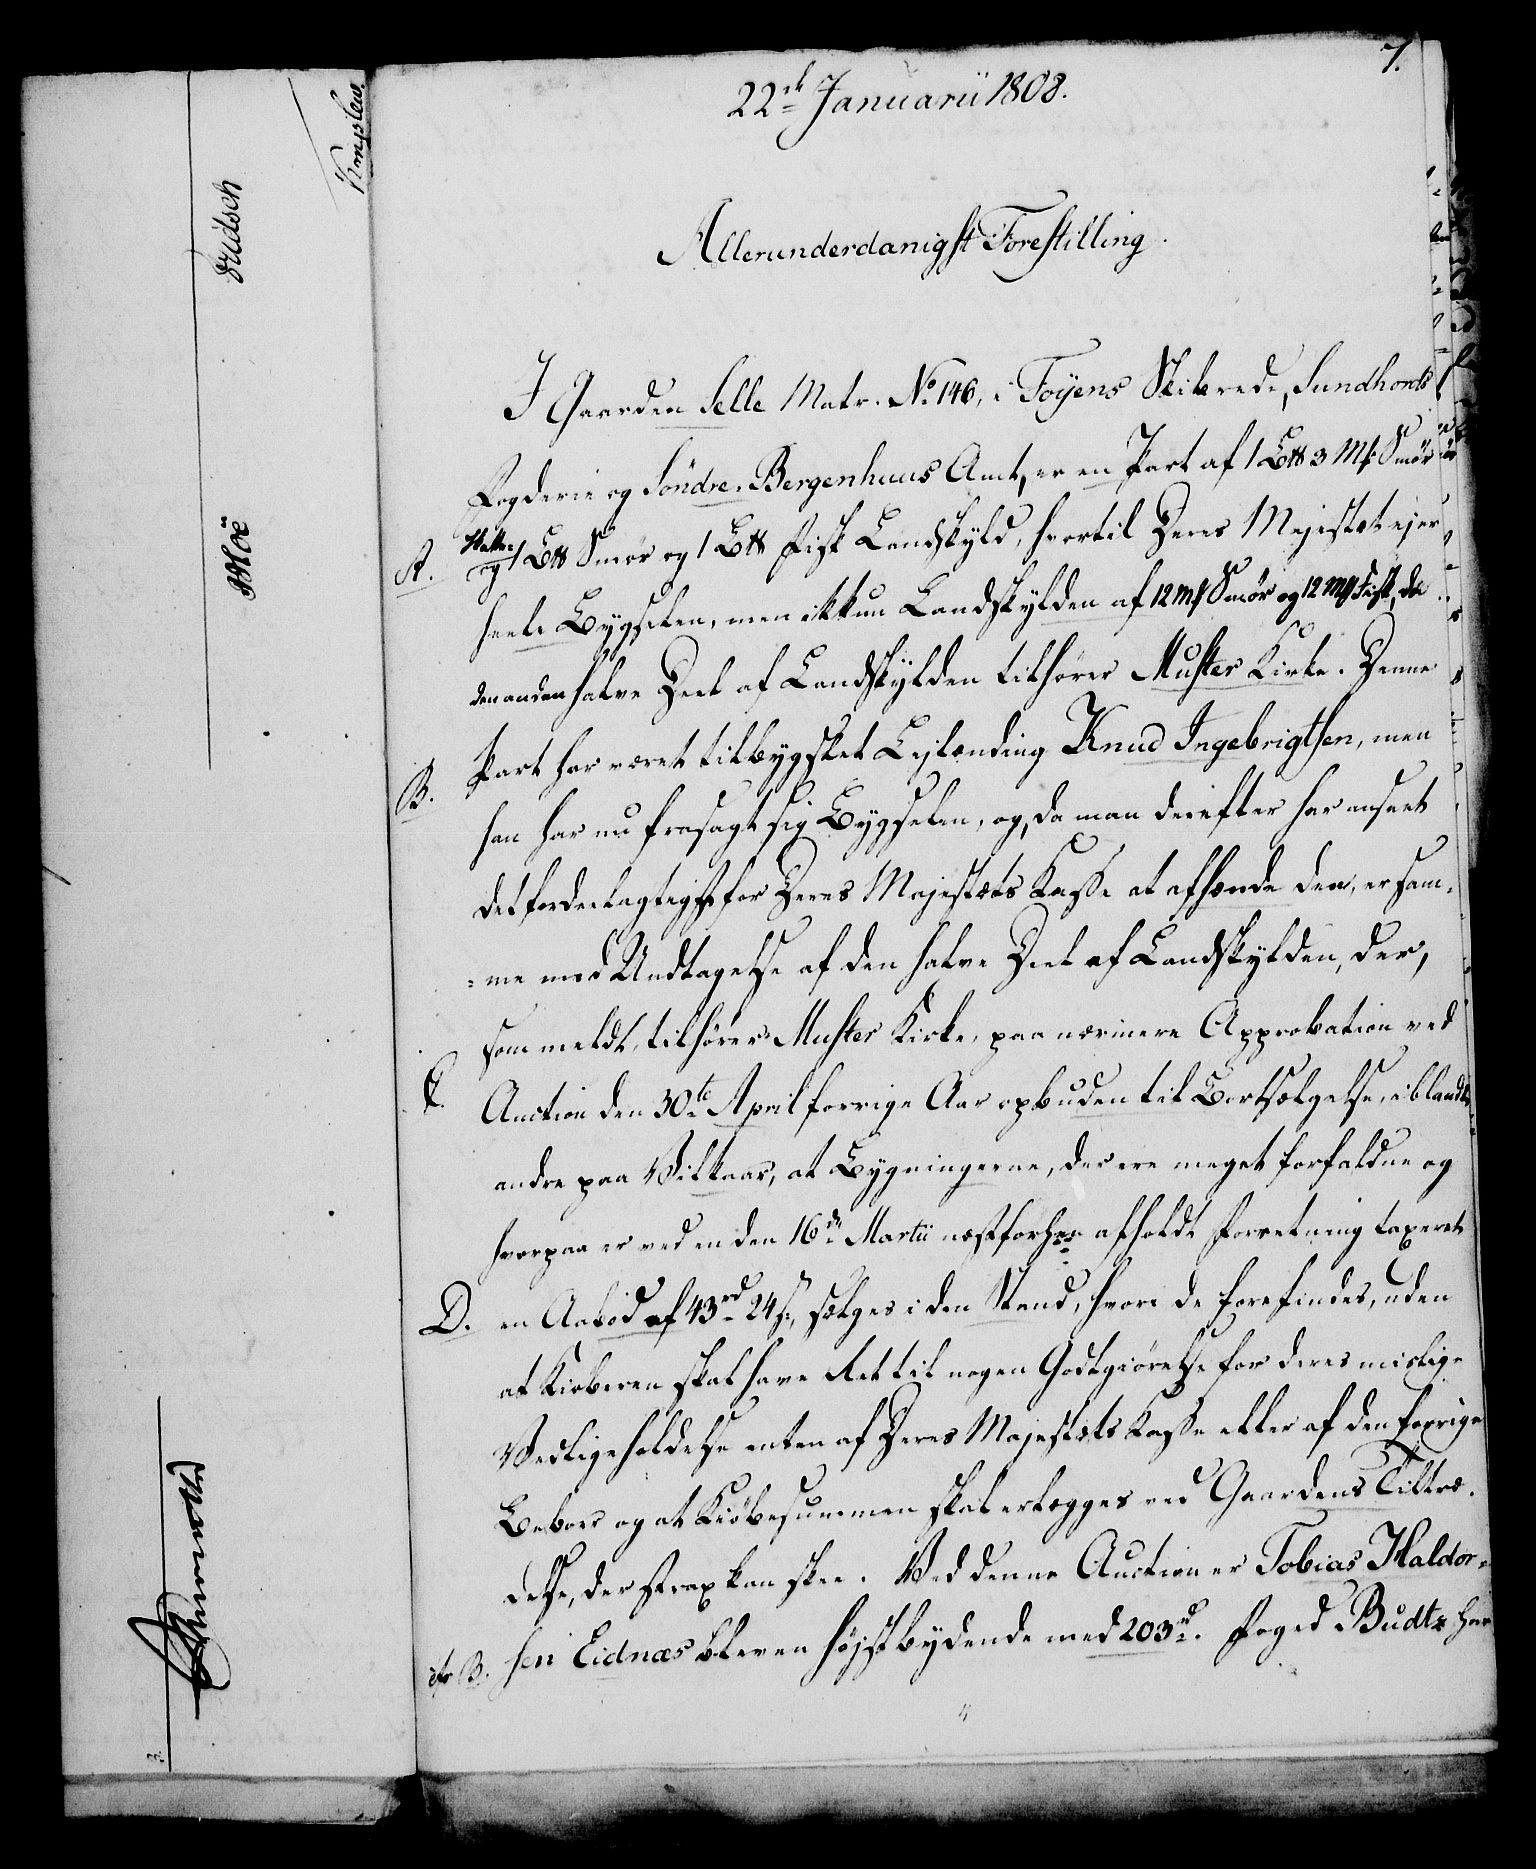 7.
22de Januarii 1808.
Allerunderdanigst Forestilling.
I Gaarden Selle Matr. No 146, i Föyens Skibrede, Sundhords
Fogderie og Söndre-Bergenhuus Amt, er en Part af 1 L℔ 3 M℔ Smör
A. og 1 L℔ Smör og 1 L℔ Fisk Landskyld, hvortil Deres Majestæt ejer
heele Bygselen, men ikkun Landskylden af 12 M℔ Smör og 12 M℔ Fisk, da
den anden halve Deel af Landskylden tilhører Muster Kirke. Denne
B. Part har været tilbygslet Lejlænding Knud Ingebrigtsen, men
han har nu frasagt sig Bygselen, og, da man derefter har anseet
det fordeelagtigst for Deres Majestæts Kasse at afhænde den, er sam-
-me med Undtagelse af den halve Deel af Landskylden, der,
som meldt, tilhører Muster Kirke, paa nærmere Approbation ved
C. Auction den 30te April forrige Aar opbuden til Bortsælgelse, iblandt
andre paa Vilkaar, at Bygningerne, der ere meget forfaldne og
hvorpaa er ved en den 16de Martii næstforhen afholdt Forretning taxeret
D. en Aabod af 43rd 24s, sælges i den Stand, hvori de forefindes, uden
at Kiøberen skal have Ret til nogen Godtgiørelse for deres mislige
Vedligeholdelse enten af Deres Majestæts Kasse eller af den forrige
Beboer og at Kiöbesummen skal erlægges ved Gaardens Tiltræ-
delse, der strax kan skee. Ved denne Auction er Tobias Haldor-
cfr B. sen Eidnæs bleven høistbydende med 203rd. Foged Budtz har
Moe
3.